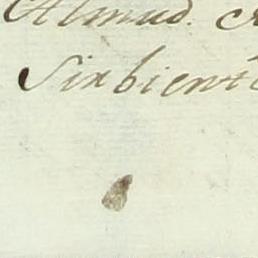 Almud.
Sirbient